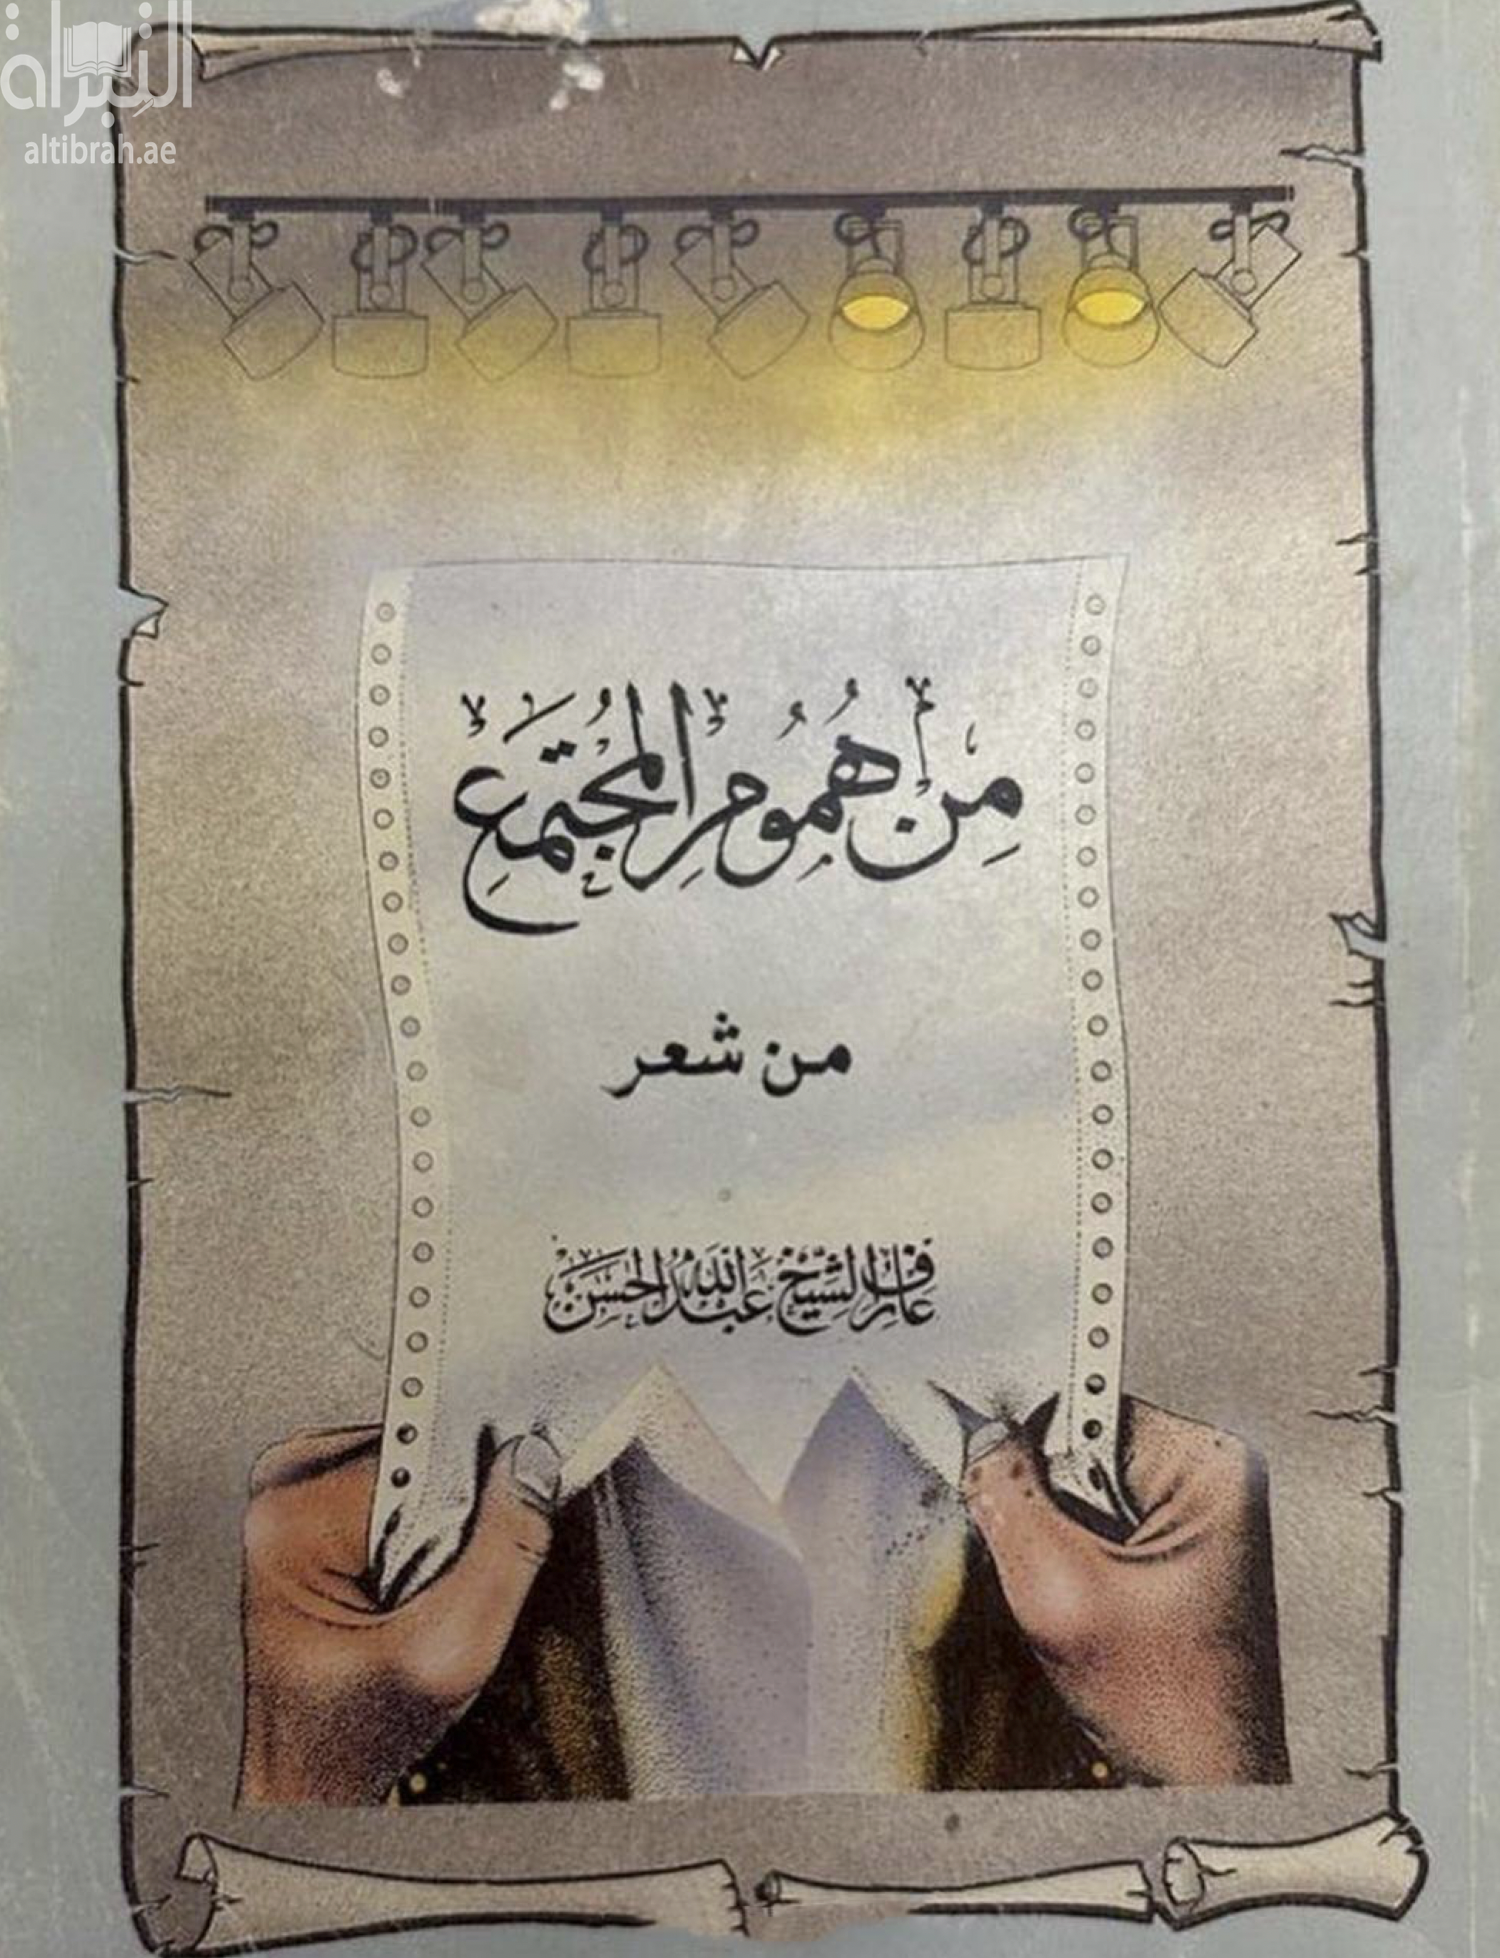 التبراة
altibrah.ae
مِنْ هُمُومِ الْمُجْتَمَعِ
من شعر
عارف الشيخ عبدالله الحسن